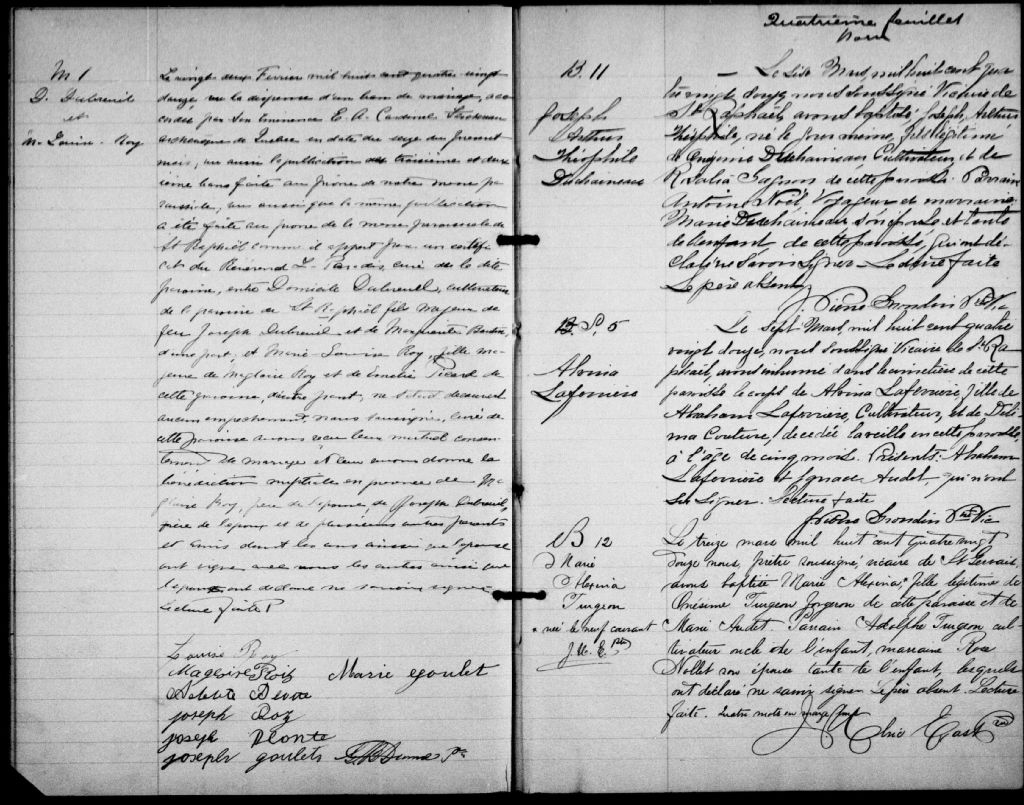 M 1
D. Dubreuil
et
M. Louise Roy
Le vingt deux Fevrier mil huit cent quatre vingt
douze vu la dispense d'un ban de mariage, acc
ordée par Son Eminence E. A. Cardinal Taschereau
archevêque de Quebec en date du seize du present
mois, vu aussi la publication de troisieme et deux
ieme bans faite au prône de notre messe pa
roissiale, vu aussi que la même publication
a été faite au prone de la messe paroissiale de
St Raphaël comme il appert par un certifi
cat du Révérend L. Paradis, curé de la dite
paroisse, entre Domicile Dubreuil, cultivateur
de la paroisse de St Raphaël fils majeur de
feu Joseph Dubreuil, et de Marguerite
d'une part, et Marie-Louise Roy, fille ma
jeure de Magloire Roy et de Emélie Picard de
cette paroisse, d'autre part, ne s'etant decouvert
aucun empechement, nous soussigné, curé de
cette paroisse avons reçu leur mutuel consen
tement de mariage et leur avons donné la
benediction nuptiale en presence de M
gloire Roy, père de l'epouse, de Joseph Dubreuil,
frère de l'epoux et de plusieurs autres parents
et amis dont les uns ainsi que l'epouse
ont signé avec nous les autres ainsi que
l'epoux ont declaré ne savoir signer
Lecture faite
Louise Roy
Magloire Rois Marie goulet
joseph Roy
joseph
joseph goulets Ptre
Quatrième feuillet
B. 11
Joseph
Arthur
Théophile
Duchaineau
Le six Mars, mil huit cent qua
tre vingt douze, nous soussigné Vicaire de
St Raphaël avons baptisé Joseph, Arthur
Théophile, né le jour même, fils légitime
de Onésime Duchaineau Cultivateur, et de
Rosalia Gagnon de cette paroisse. Parrain
Antoine Noël, Voyageur, marraine
Marie Duchaineau son épouse et tante
de l'enfant de cette paroisse, qui ont dé-
claré ne savoir signer. Lecture faite
Le père absent
J. Pierre Grondin Ptre Vic
B. S. 5
Alvina
Laferrière
Le sept Mars, mil huit cent quatre
vingt douze, nous soussigné Vicaire de St Ra
phaël, avons inhumé dans le cimetière de cette
paroisse le corps de Alvina Laferrière, fille de
Abraham Laferrière, Cultivateur, et de Déli
ma Couture, decedée la veille en cette paroisse,
à l'age de cinq mois. Présents: Abraham
Laferrière et Ignace Audet qui n'ont
su signer. Lecture faite
J. Pierre Grondin Ptre Vic
B 12
Marie
Alexina
Turgeon
* née le neuf courant
J. U. E. Ptre
Le treize mars mil huit cent quatre vingt
douze nous, prêtre soussigné, vicaire de St Gervais,
avons baptisé Marie Alexina,* fille légitime de
Onésime Turgeon forgeron de cette paroisse et de
Marie Audet. Parrain Adolphe Turgeon cul
tivateur oncle de l'enfant, marraine Rose
Nollet son épouse tante de l'enfant, lesquels
ont déclaré ne savoir signer. Le père absent. Lecture
faite. Quatre mots en marge